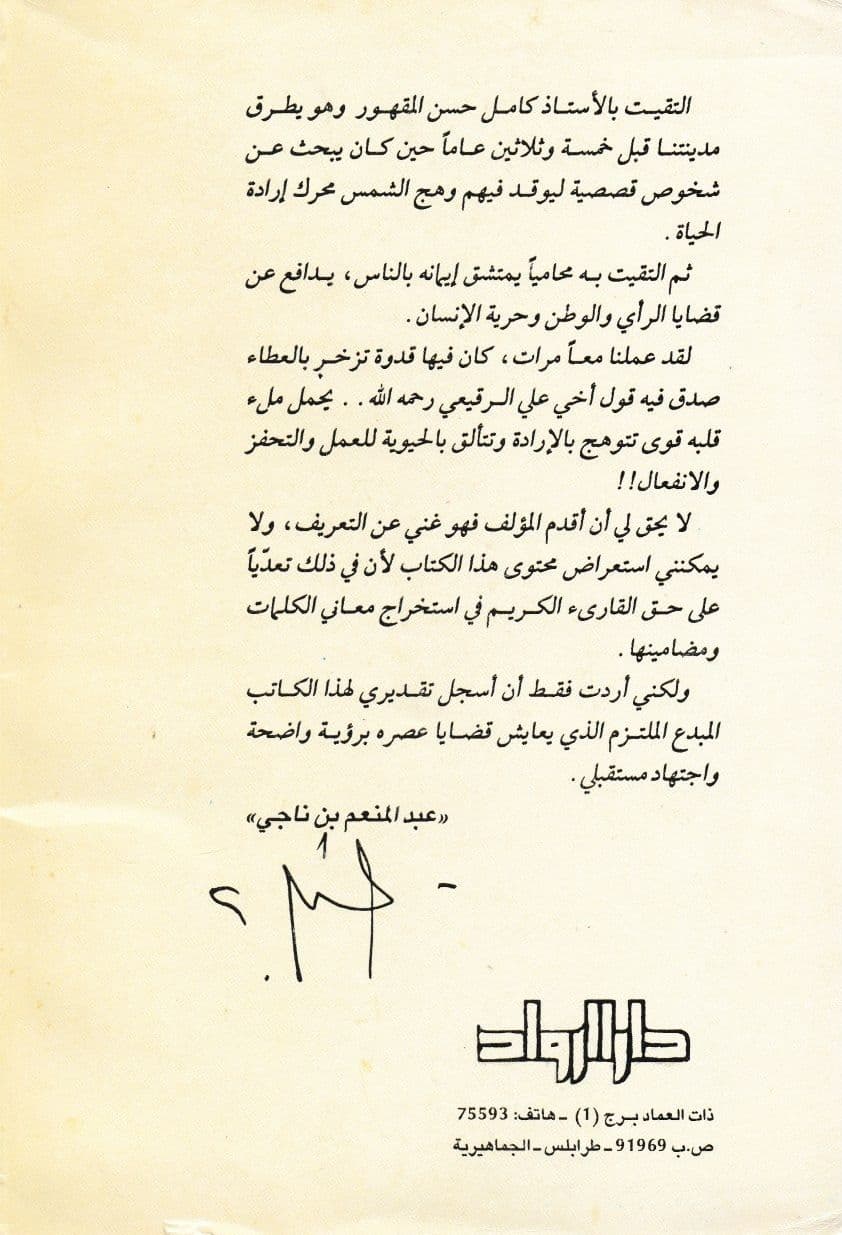 التقيت بالأستاذ كامل حسن المقهور وهو يطرق
مدينتنا قبل خمسة وثلاثين عاماً حين كان يبحث عن
شخوص قصصية ليوقد فيهم وهج الشمس محرك إرادة
الحياة .
ثم التقيت به محامياً يمتشق إيمانه بالناس ، يدافع عن
قضايا الرأي والوطن وحرية الإنسان .
لقد عملنا معاً مرات ، كان فيها قدوة تزخر بالعطاء
صدق فيه قول أخي علي الرقيعي رحمه الله . . يحمل ملء
قلبه قوى تتوهج بالإرادة وتتألق بالحيوية للعمل والتحفز
والانفعال !!
لا يحق لي أن أقدم المؤلف فهو غني عن التعريف ، ولا
يمكنني استعراض محتوى هذا الكتاب لأن في ذلك تعدّياً
على حق القارىء الكريم في استخراج معاني الكلمات
ومضامينها .
ولكني أردت فقط أن أسجل تقديري لهذا الكاتب
المبدع الملتزم الذي يعايش قضايا عصره برؤية واضحة
واجتهاد مستقبلي .
«عبد المنعم بن ناجي»
دار الرواد
ذات العماد برج (1) ـ هاتف: 75593
ص.ب 91969 ـ طرابلس ـ الجماهيرية